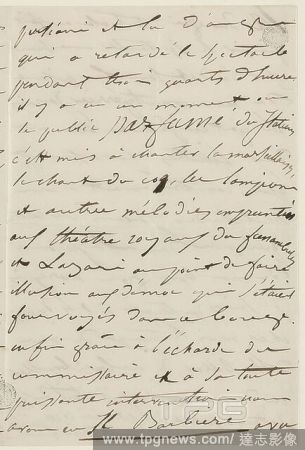 qui a retardé le spectacle
pendant trois quarts d'heure
il y a eu un moment où
le public parfumé des Italiens
s'est mis à chanter la marseillaise,
le chant du coq, les lampions
et autres mélodies empruntées
aux théâtres royaux du funambule
et Lazari au point de faire
illusion aux démoc qui s'étaient
fourvoyés dans ce bouge.
enfin grâce à l'écharpe du
commissaire et à sa toute
puissante intervention nous
avons eu Il Barbiere avec
TPG
www.tpgnews.com/達志影像